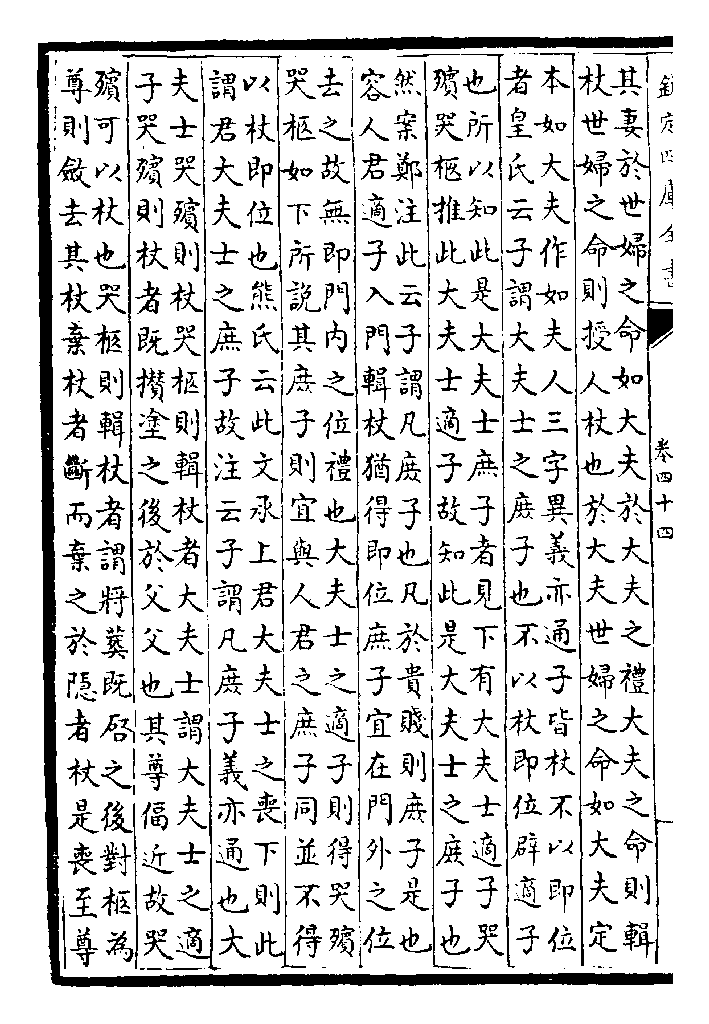 欽定四庫全書
卷四十四
其妻於世婦之命如大夫於大夫之禮大夫之命則輯
杖世婦之命則授人杖也於大夫世婦之命如大夫定
本如大夫作如夫人三字異義亦通子皆杖不以即位
者皇氏云子謂大夫士之庶子也不以杖即位辟適子
也所以知此是大夫士庶子者見下有大夫士適子哭
殯哭柩推此大夫士適子故知此是大夫士之庶子也
然案鄭注此云子謂凡庶子也凡於貴賤則庶子是也
容人君適子入門輯杖猶得即位庶子宜在門外之位
去之故無即門内之位禮也大夫士之適子則得哭殯
哭柩如下所説其庶子則宜與人君之庶子同並不得
以杖即位也熊氏云此文承上君大夫士之喪下則此
謂君大夫士之庶子故注云子謂凡庶子義亦通也大
夫士哭殯則杖哭柩則輯杖者大夫士謂大夫士之適
子哭殯則杖者既攢塗之後於父父也其尊偪近故哭
殯可以杖也哭柩則輯杖者謂將葬既啓之後對柩為
尊則斂去其杖棄杖者斷而棄之於隠者杖是喪至尊